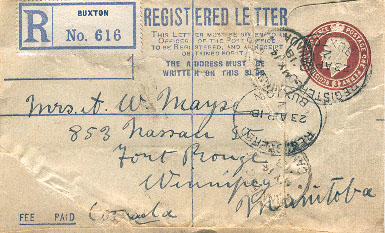 BUXTON
R No. 616
REGISTERED LETTER
THIS LETTER MUST BE GIVEN TO AN
OFFICER OF THE POST OFFICE
TO BE REGISTERED, AND A RECEIPT
OBTAINED FOR IT.
THE ADDRESS MUST BE
WRITTEN ON THIS SIDE.
REGISTERED
23 AP 18
Mrs. A. W. Mayse
853 Nassau St
Fort Rouge
Winnipeg
Manitoba
FEE PAID
Canada